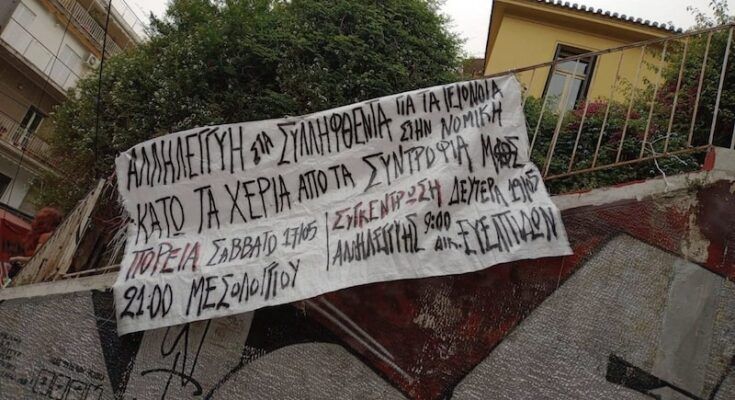 ΑΛΛΗΛΕΓΓΥΗ στα ΣΥΛΛΗΦΘΕΝΤΑ ΓΙΑ ΤΑ ΓΕΓΟΝΟΤΑ ΣΤΗΝ ΝΟΜΙΚΗ
ΚΑΤΩ ΤΑ ΧΕΡΙΑ ΑΠΟ ΤΑ ΣΥΝΤΡΟΦΙΑ ΜΑΣ
ΠΟΡΕΙΑ ΣΑΒΒΑΤΟ 17/05
21:00 ΜΕΣΟΛΟΓΓΙΟΥ
ΣΥΓΚΕΝΤΡΩΣΗ ΔΕΥΤΕΡΑ 19/05
ΑΛΛΗΛΕΓΓΥΗΣ 9:00 ΔΙΚ. ΕΥΕΛΠΙΔΩΝ